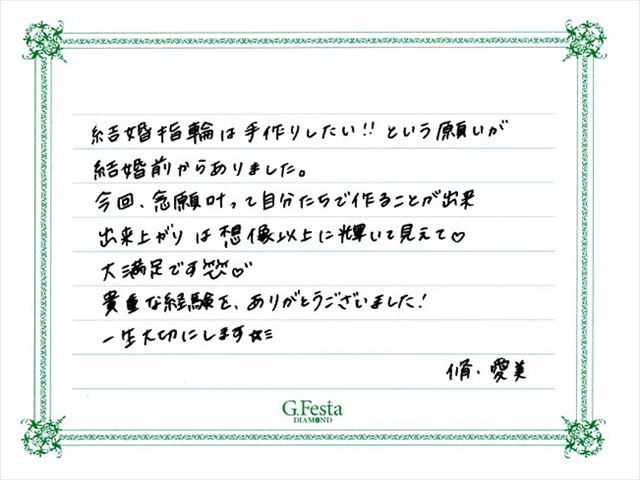 結婚指輪は手作りしたい!! という願いが
結婚前からありました。
今回、念願叶って自分たちで作ることが出来
出来上がりは想像以上に輝いて見えて♡
大満足です笑♡
貴重な経験を、ありがとうございました!
一生大切にします☆ミ
脩・愛美
G.Festa
DIAMOND